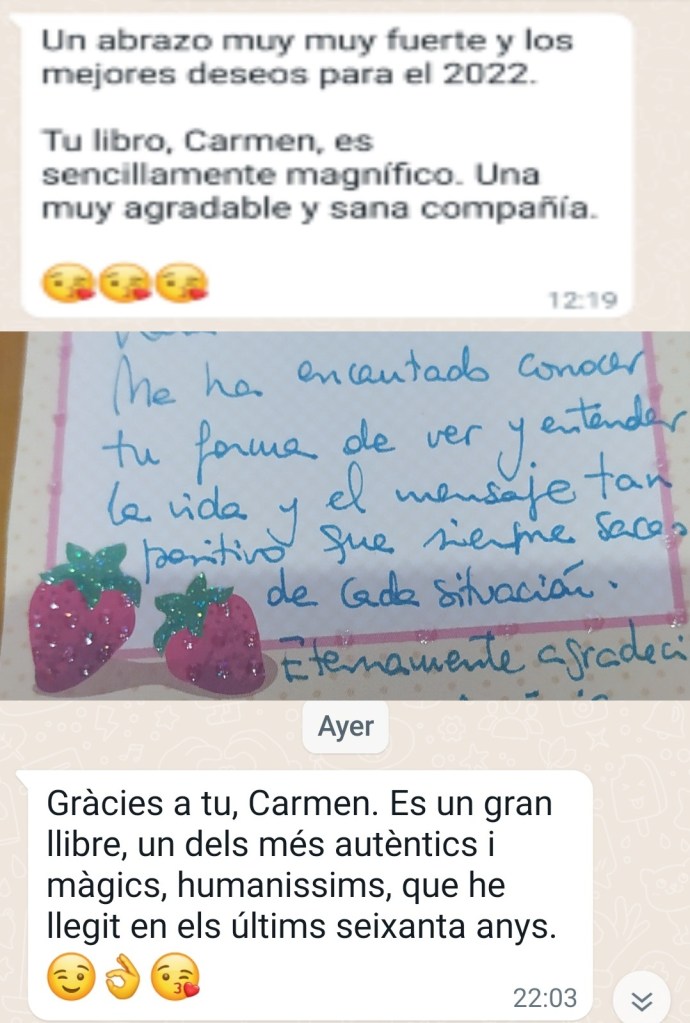 Un abrazo muy muy fuerte y los
mejores deseos para el 2022.
Tu libro, Carmen, es
sencillamente magnífico. Una
muy agradable y sana compañía.
12:19
Me ha encantado conocer
tu forma de ver y entender
la vida y el mensaje tan
positivo que siempre sacas
de cada situación.
Eternamente agradeci
Ayer
Gràcies a tu, Carmen. Es un gran
llibre, un dels més autèntics i
màgics, humanissims, que he
llegit en els últims seixanta anys.
22:03